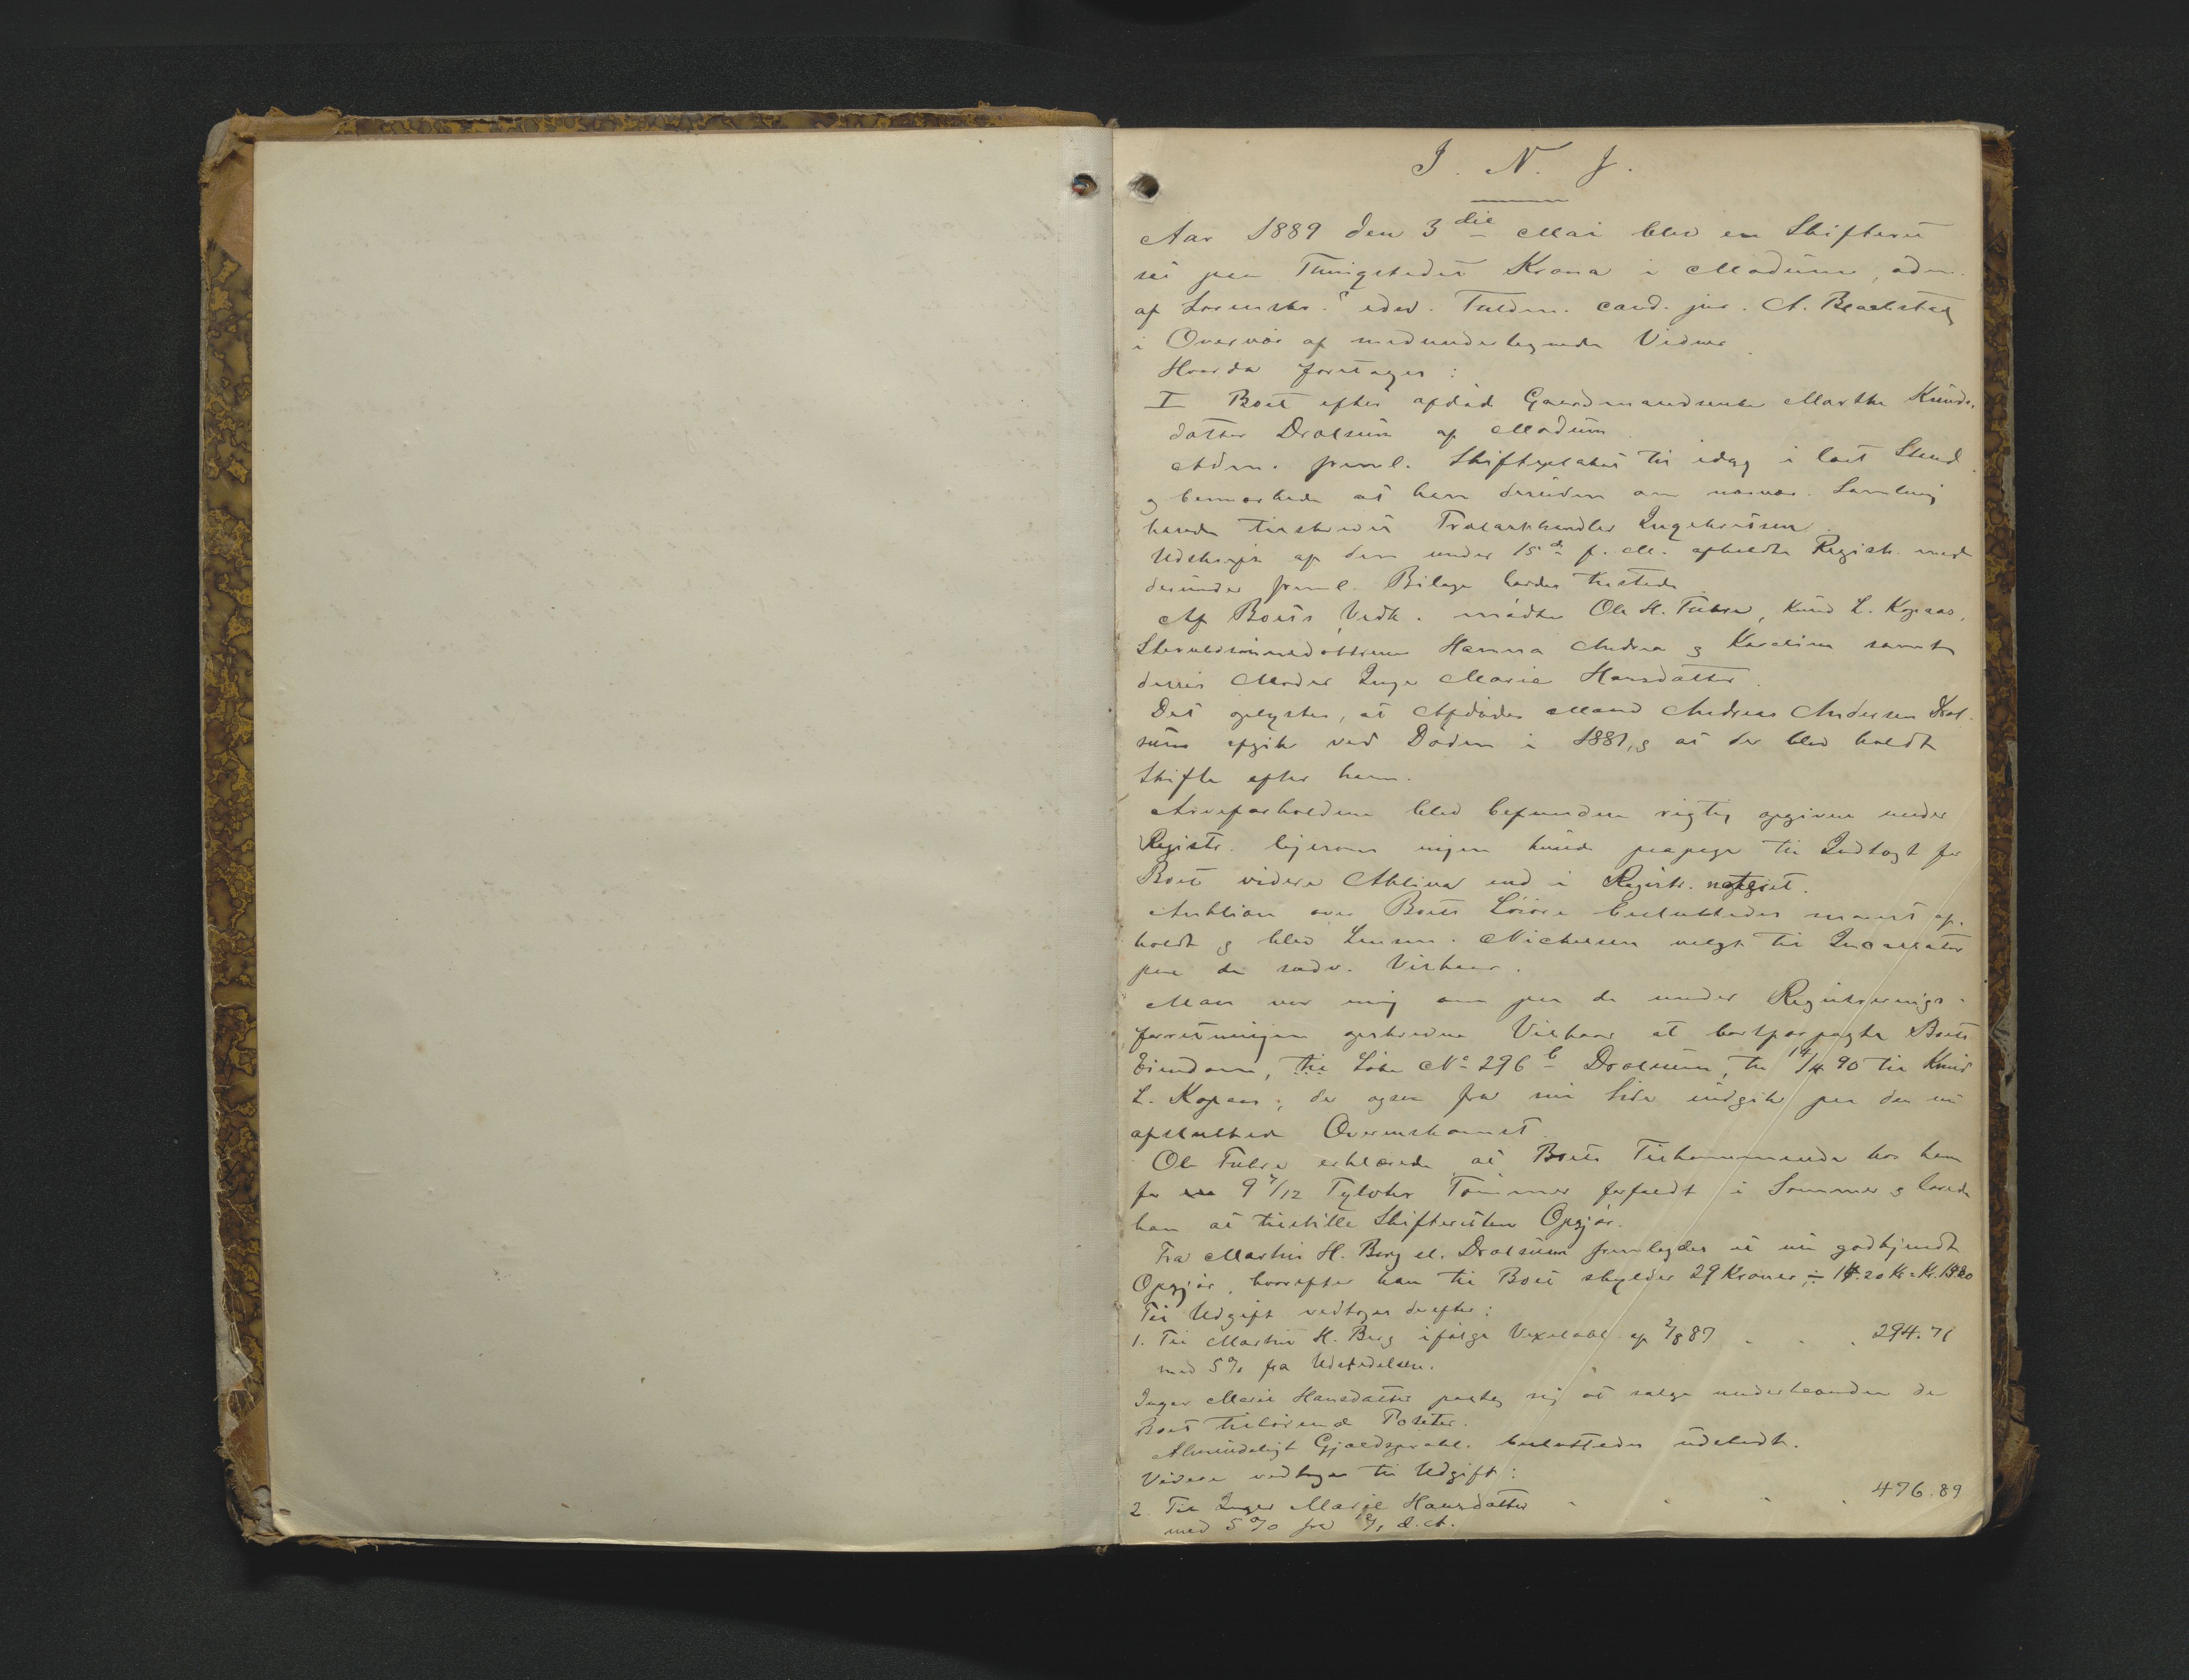 I. N. J.
Aar 1889 den 3die Mai blev en Skifteret
sat paa Thingstedet Krona i Modum, adm.
af Sorenskr. edsv. Fuldm. cand. jur. A.
i Overvær af medundertegnede Vidner
Hvorda foretages:
I Boet efter afdød Gaardmandsenke Marthe Knuds-
datter Drolsum af Modum
Adm. freml. Skifteplakat til idag i læst Stand
og bemærkede at han desuden om nærvær. Samling
havde tilskrevet Trælasthandler Ingebretsen
Udskrift af den under 15de f. M. afholdte Registr. med
derunder freml. Bilage havdes tilstede
Af Boets Vedk. mødte Ole H. Fuhre, Knud L. Kopaas,
Stervbdsønnedøttrene Hanna Andrea og Karoline samt
derres Moder Inger Marie Hansdatter.
Det oplystes, at Afdødes Mand Andreas Andersen Drol-
sum afgik ved Døden i 1881, og at der blev holdt
Skifte efter ham.
Arveforholdene blev befundne rigtig opgivne under
Registr. ligesom ingen kunde paapege til Indtægt for
Boet videre Aktiva end i Registr. noteret.
Auktion over Boets Løsøre besluttedes snarest af-
holdt og blev Lensm. Michelsen valgt til Incassator
paa de sædv. Vilkaar.
Man var enig om paa de under Registrerings-
forretningen opskrevne Vilkaar at bortforpagte Boets
Eiendom, Løbe No 296 b Drolsum, til 14/4 90 til Knud
L. Kopaas, der ogsaa fra sin Side indgik paa den nu
afsluttede Overenskomst
Ole Fuhre erklærede at Boets Tilkommende hos ham
for 9 7/12 Tylvter Tømmer forfaldt i Sommer og lovede
han at tilstille Skifteretten Opgjør.
Fra Martin H. Berg el. Drolsum fremlagdes et nu godkjendt
Opgjør, hvorefter han til Boet skylder 29 Kroner,
Til Udgift vedtoges derefter:
1. Til Martin H. Berg ifølge Vexelobl. af 2/8 87 . . . 294.71
med 5% fra Udstedelsen.
Inger Marie Hansdatter paatog sig at sælge underhaanden de
Boet tilhørende Poteter.
Almindeligt Gjældsprokl. besluttedes udstedt.
Videre vedtoges til Udgift:
2. Til Inger Marie Hansdatter . . . 476.89
med 5% fra d. A.